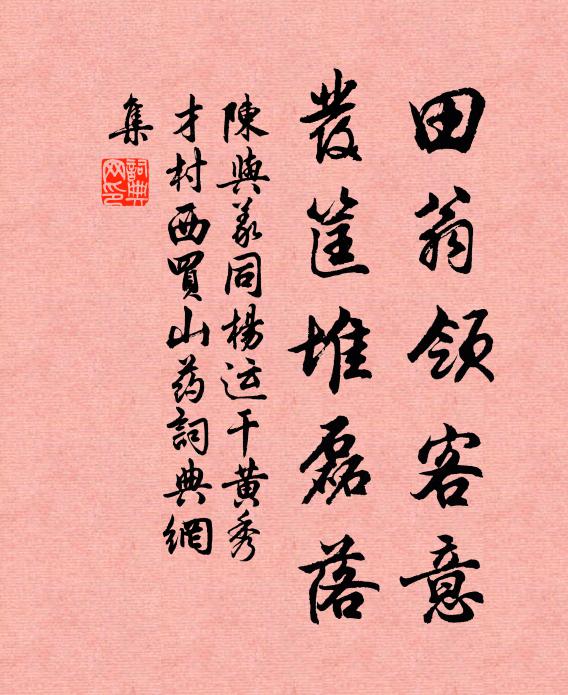 田翁領客意
發筐堆磊落
陳與義同楊运干黄秀
才村西買山药詞典網
集
詞典網印